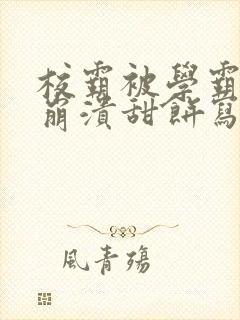 校霸被學霸
崩潰甜餅寫
風青殤